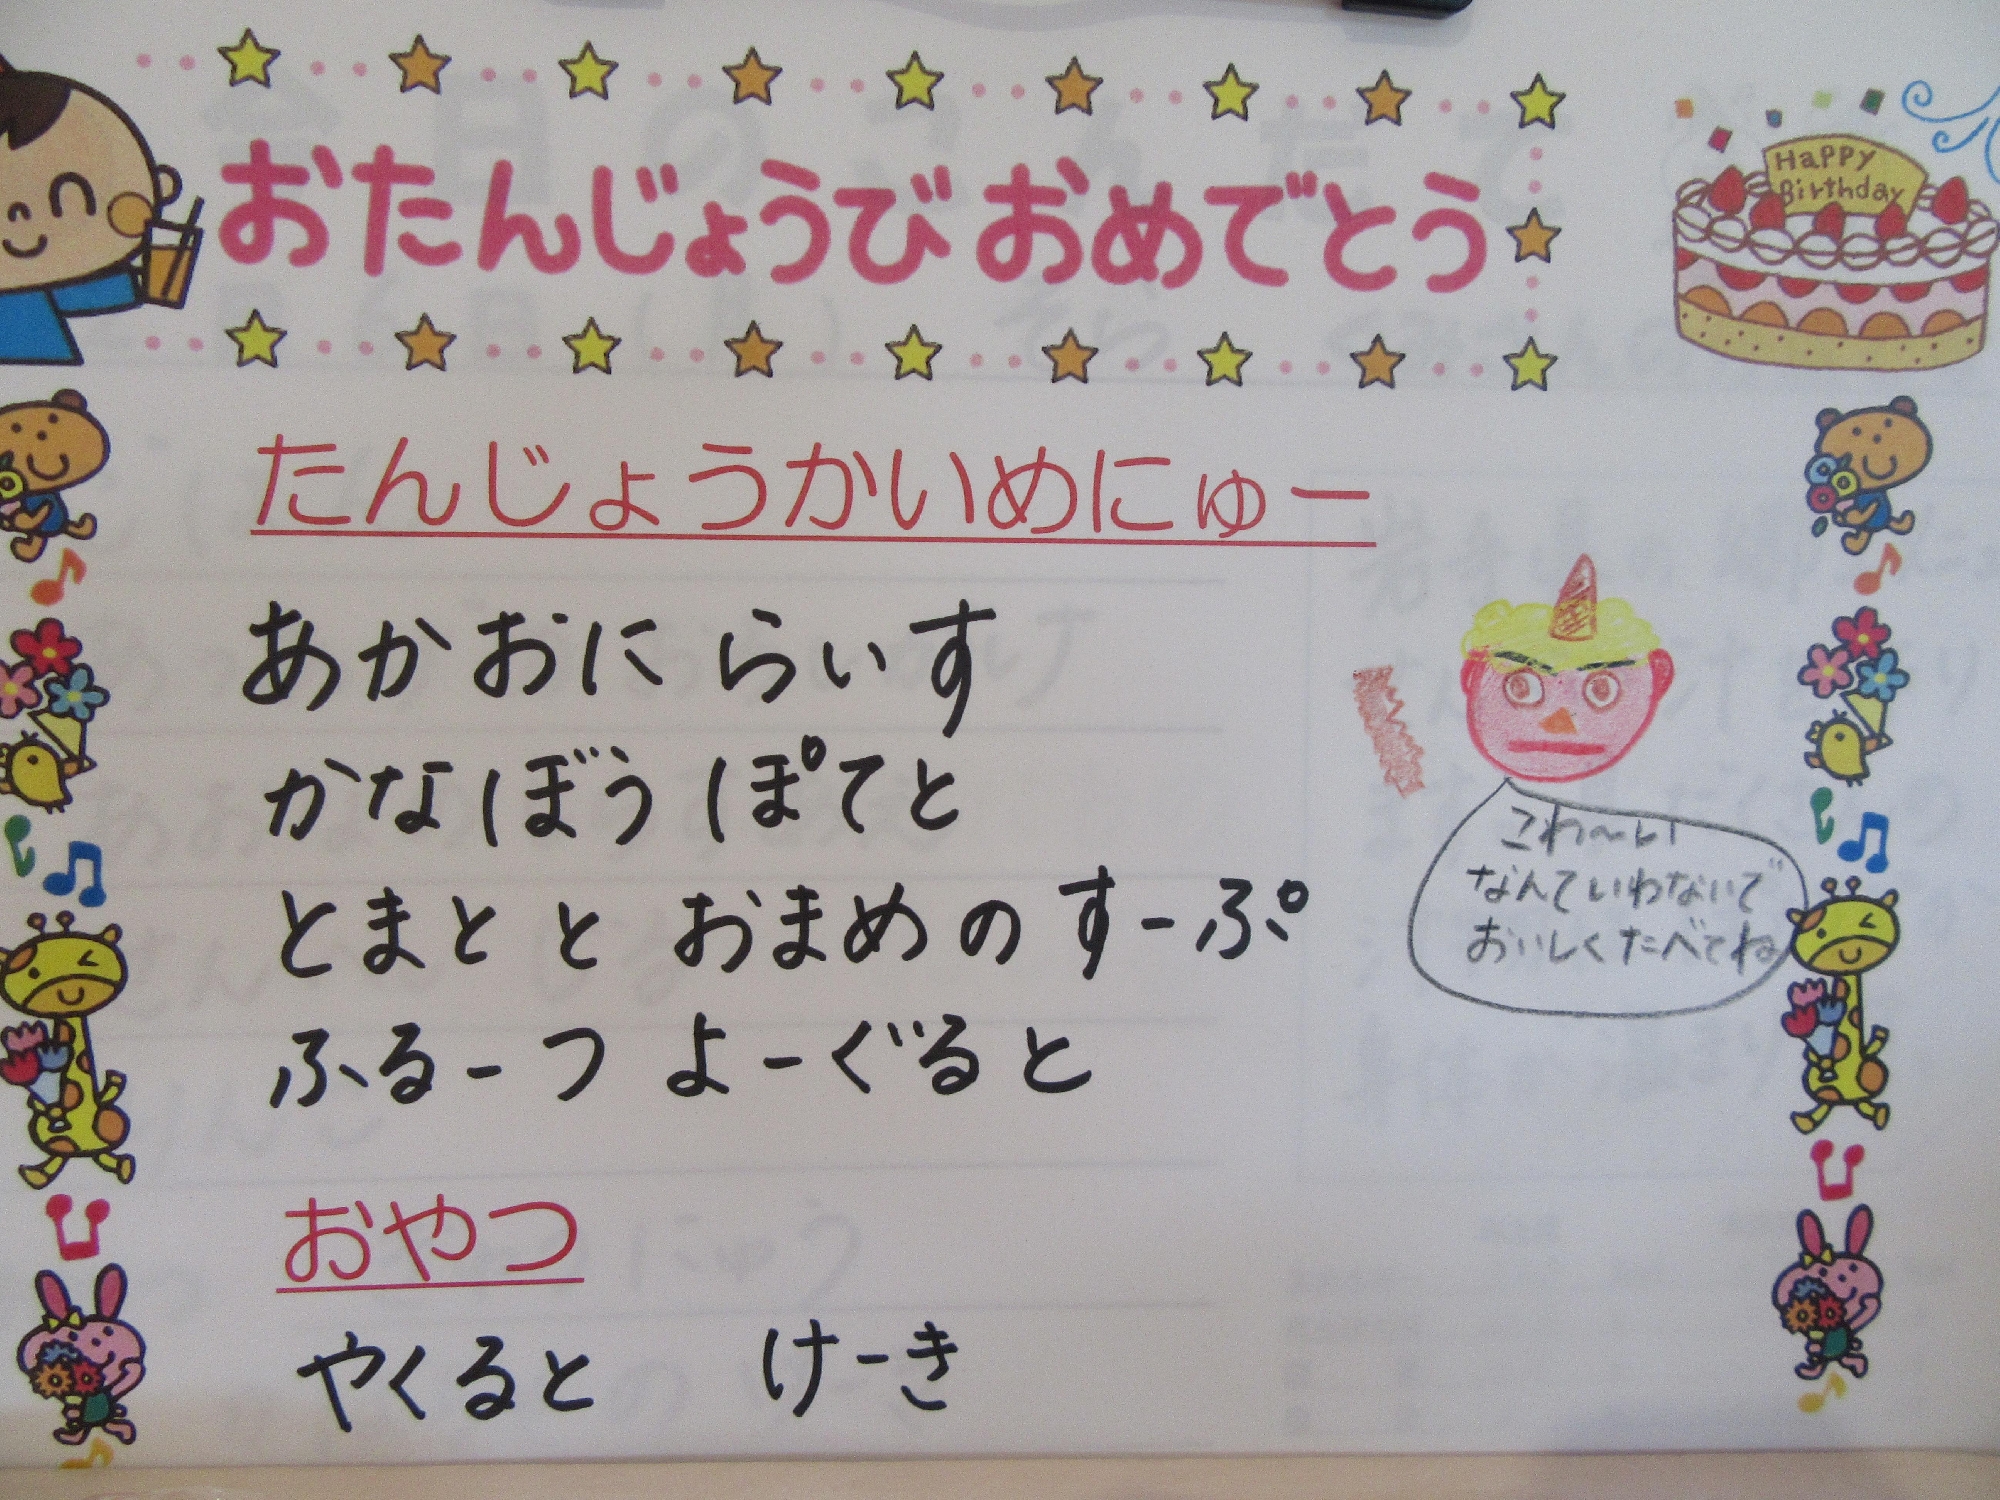 おたんじょうび おめでとう
Happy
Birthday
たんじょうかいめにゅー
あかおに らいす
かなぼう ぽてと
とまと と おまめ の すーぷ
ふるーつ よーぐると
こわ〜い
なんていわないで
おいしくたべてね
おやつ
やくると けーき